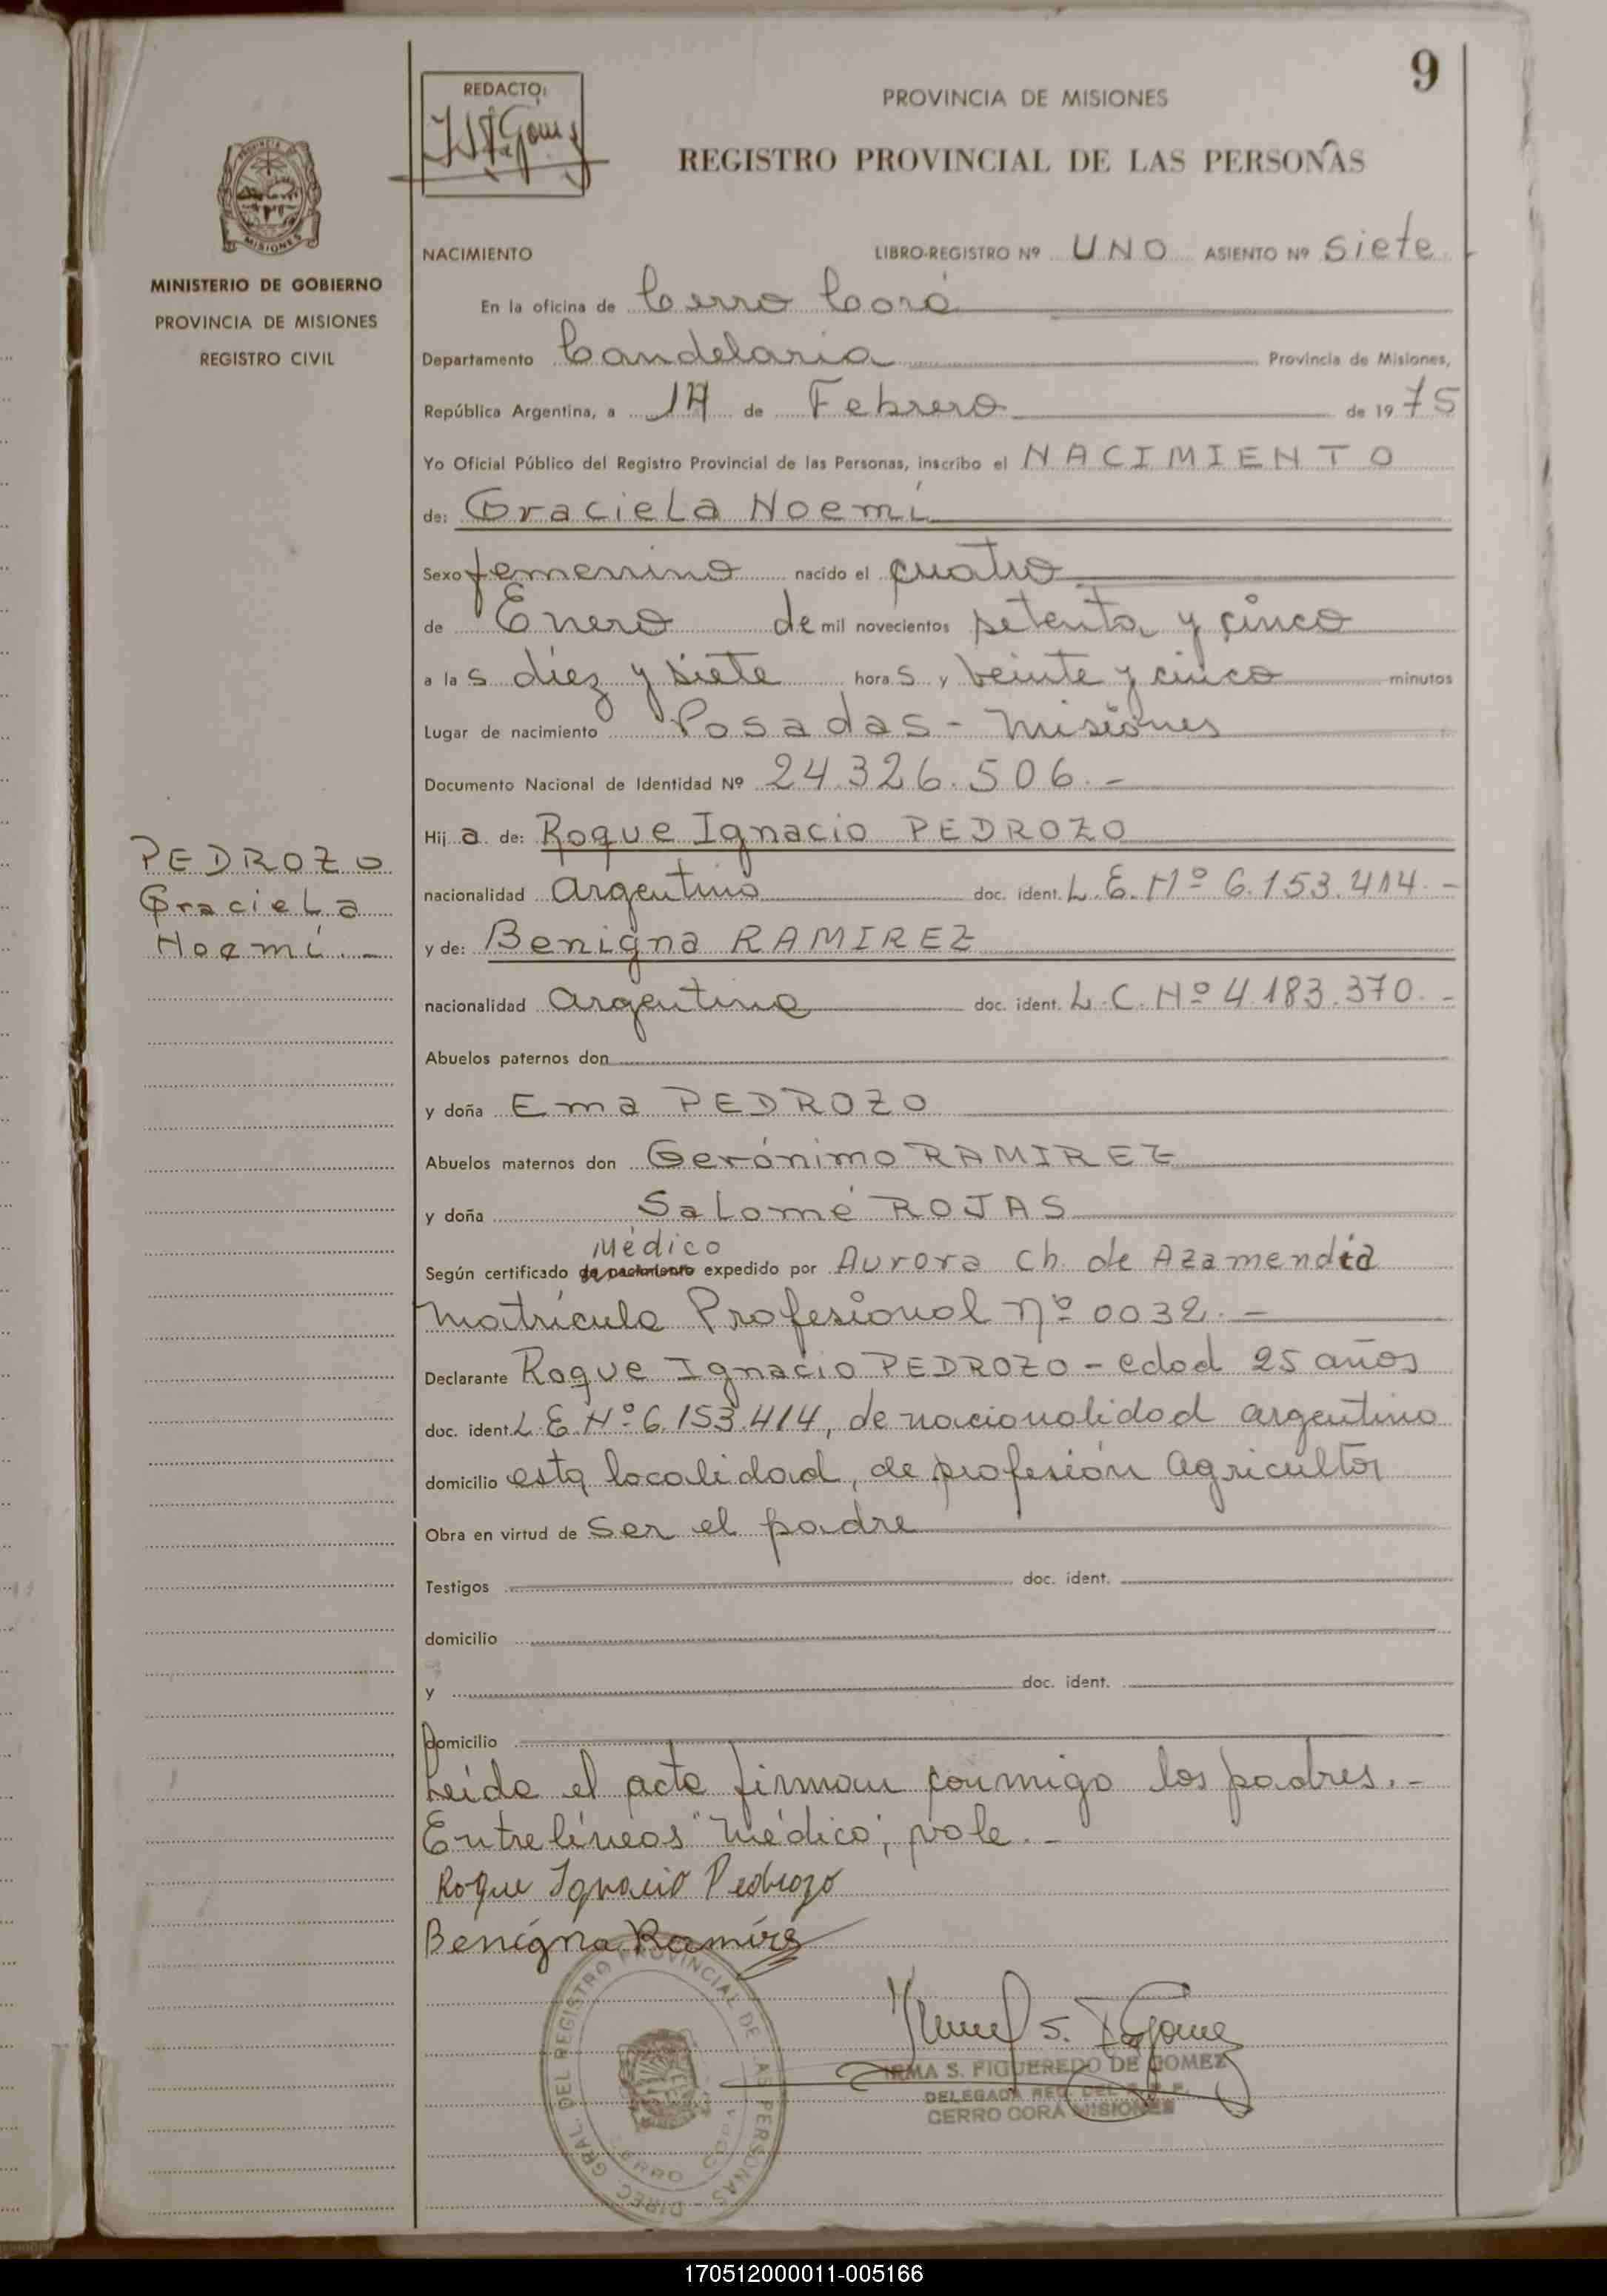 9
REDACTO:
PROVINCIA DE MISIONES
REGISTRO PROVINCIAL DE LAS PERSONAS
MISIONES
MINISTERIO DE GOBIERNO
PROVINCIA DE MISIONES
REGISTRO CIVIL
NACIMIENTO LIBRO-REGISTRO Nº UNO ASIENTO Nº siete
En la oficina de Cerro Corá
Departamento Candelaria Provincia de Misiones,
República Argentina, a de Febrero de 1975
Yo Oficial Público del Registro Provincial de las Personas, inscribo el NACIMIENTO
de: Graciela Noemí
Sexo femenino nacido el cuatro
de Enero de mil novecientos setenta y cinco
a las diez y siete horas y veinte y cinco minutos
Lugar de nacimiento Posadas - Misiones
Documento Nacional de Identidad Nº 24.326.506.-
Hija de: Roque Ignacio PEDROZO
PEDROZO
Graciela
Noemí.-
nacionalidad argentino doc. ident. L.E.Nº 6.153.414.-
y de: Benigna RAMIREZ
nacionalidad argentina doc. ident. L.C.Nº 4.183.370.-
Abuelos paternos don
y doña Ema PEDROZO
Abuelos maternos don Gerónimo RAMIREZ
y doña Salomé ROJAS
Médico
Según certificado de nacimiento expedido por Aurora Ch. de Azamendia
Matrícula Profesional Nº 0032.-
Declarante Roque Ignacio PEDROZO - edad 25 años
doc. ident. L.E.Nº 6.153.414, de nacionalidad argentino
domicilio esta localidad, de profesión agricultor
Obra en virtud de ser el padre
Testigos doc. ident.
domicilio
y doc. ident.
domicilio
Leida el acta firman conmigo los padres.-
Entrelíneas "Médico", vale.-
Roque Ignacio Pedrozo
Benigna Ramírez
DIREC. GRAL. DEL REGISTRO PROVINCIAL DE LAS PERSONAS
CERRO CORA
IRMA S. FIGUEREDO DE GOMEZ
DELEGADA REG. DEL
CERRO CORA MISIONES
170512000011-005166